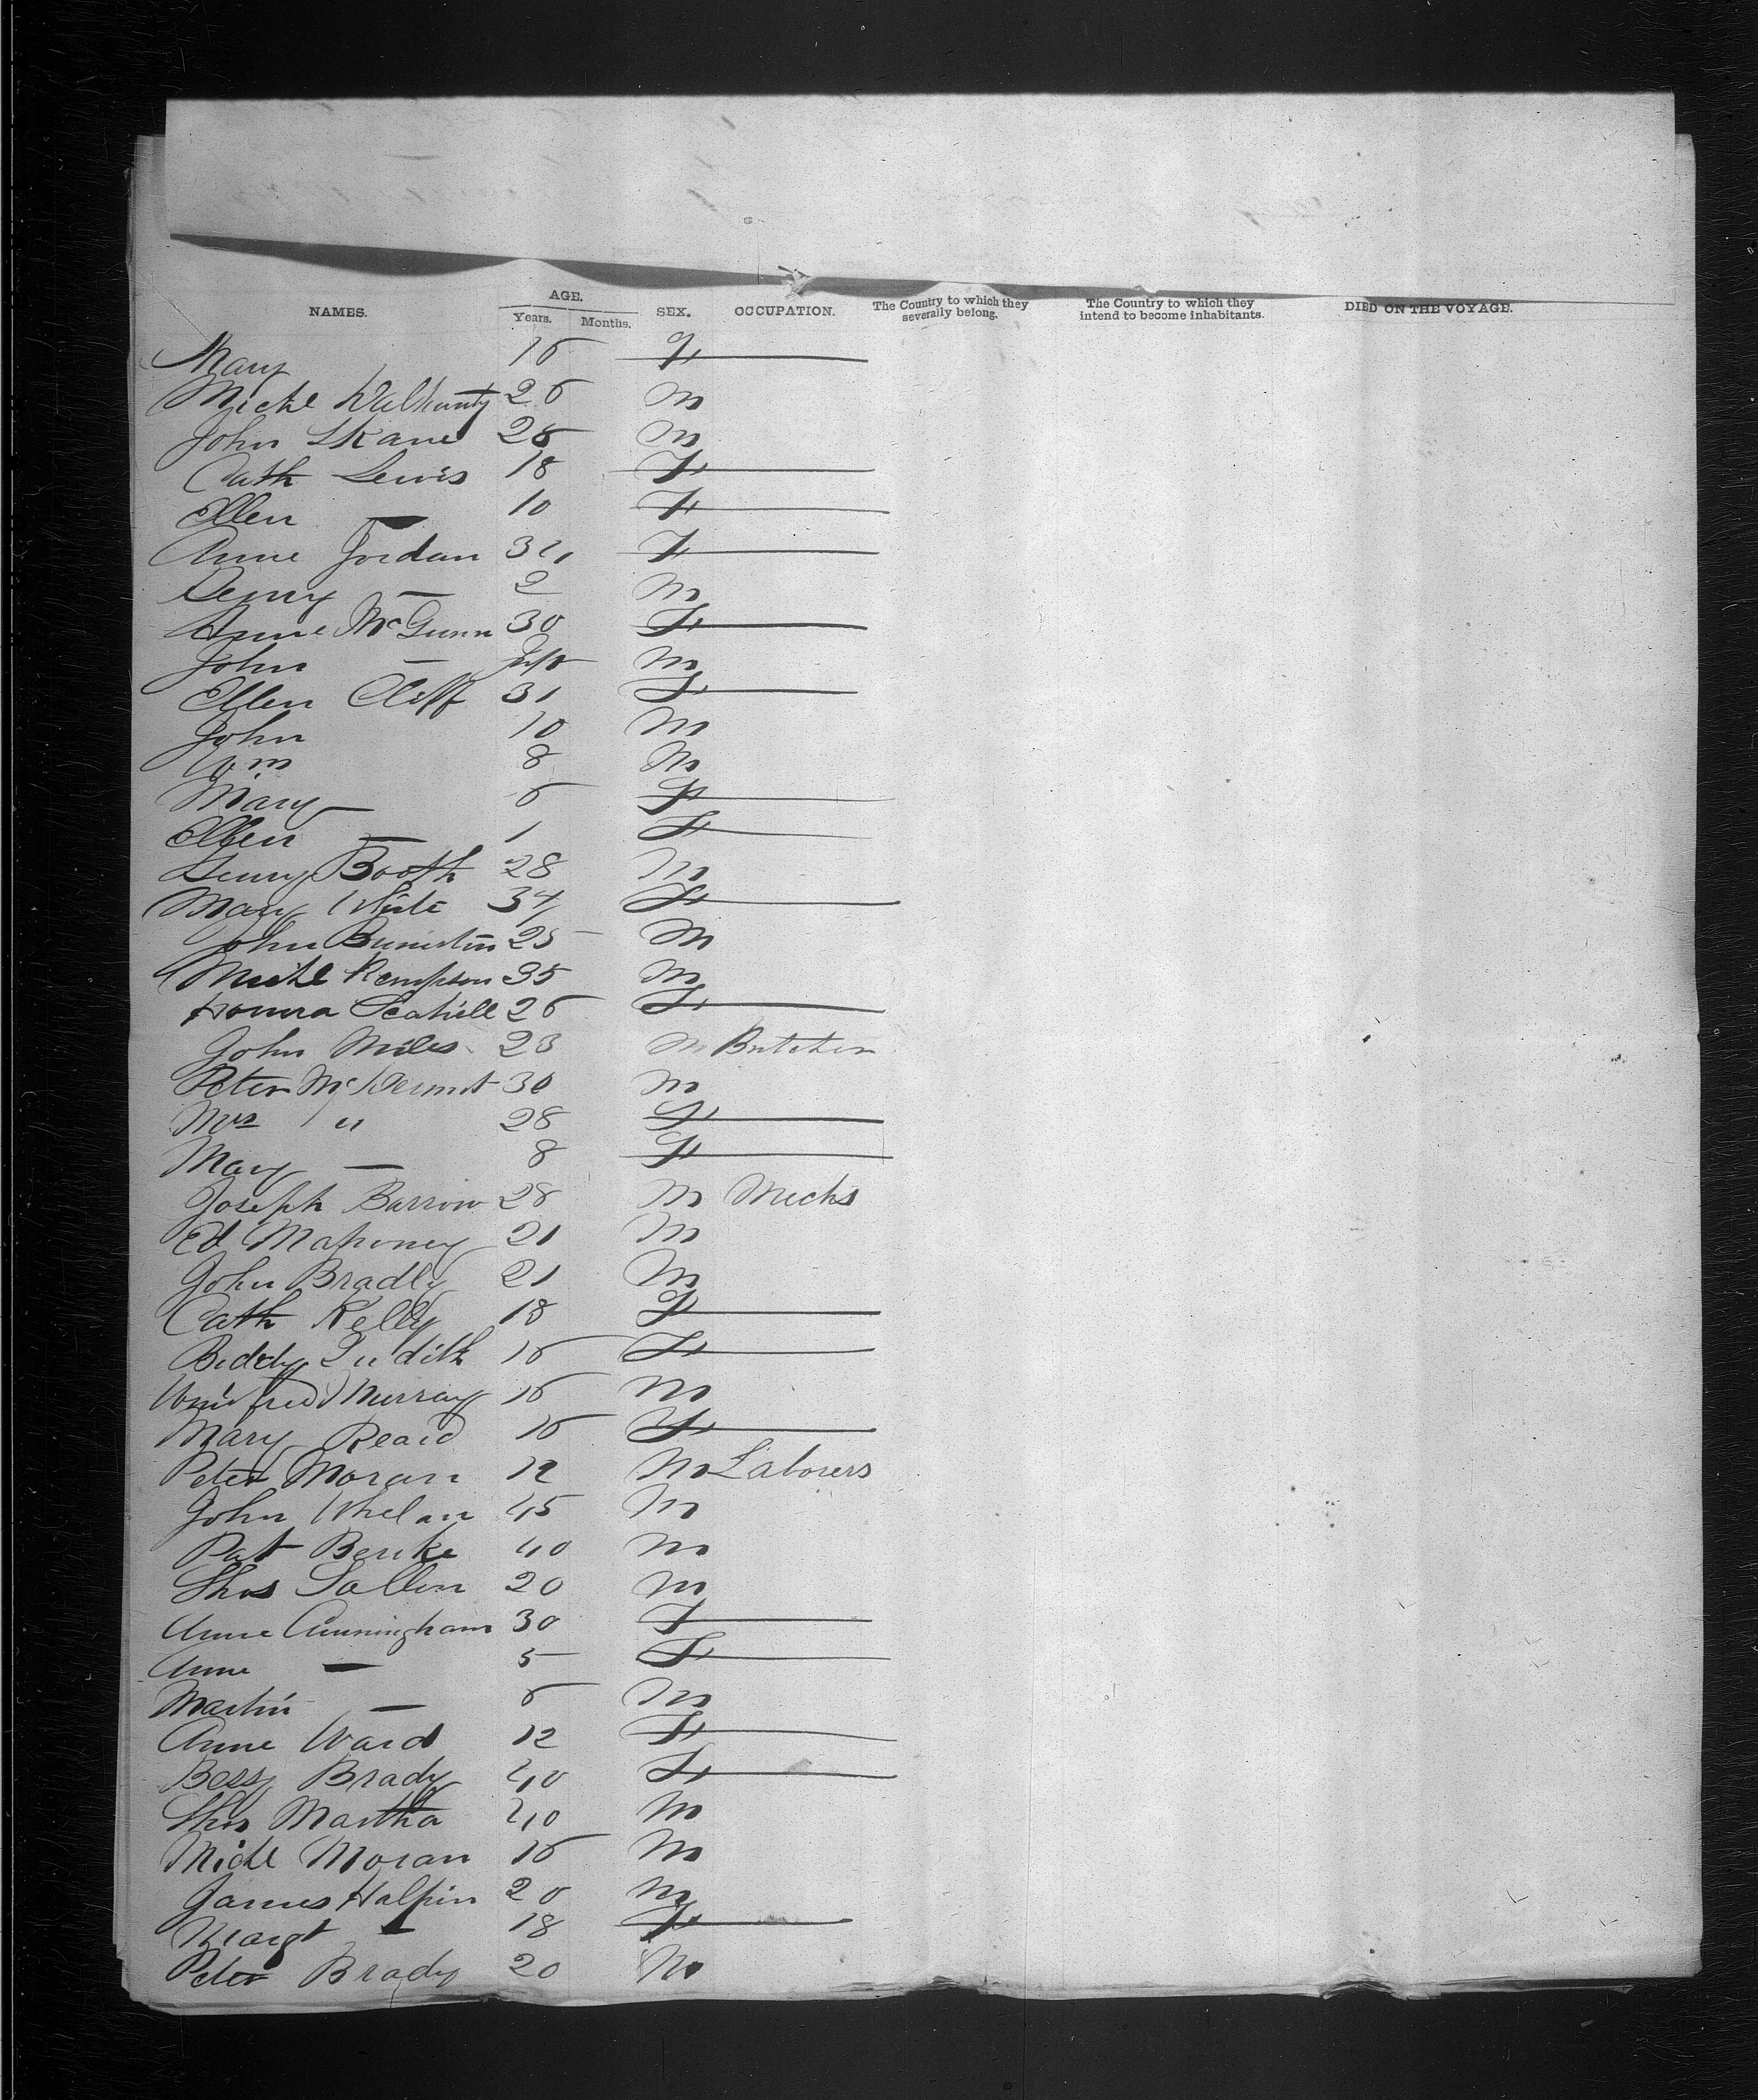 NAMES. AGE. Years. Months. SEX. OCCUPATION. The Country to which they severally belong. The Country to which they intend to become inhabitants. DIED ON THE VOYAGE.
Mary 16 F
Michl 26 M
John Skane 28 M
Cath Lewis 18 F
Ellen — 10 F
Anne Jordan 34 F
Henry — 2 M
Anne McGunn 30 F
John — Inft M
Ellen Cliff 31 F
John 10 M
Wm 8 M
Mary — 6 F
Ellen — 1 F
Henry Booth 28 M
Mary White 34 F
John 25 M
Michl Kempson 35 M
Honora Scahill 26 F
John Miles 23 M Butcher
Peter McDermot 30 M
Mrs " 28 F
Mary — 8 F
Joseph Barrow 28 M Mechs
Ed Mahoney 21 M
John Bradly 21 M
Cath Kelly 18 F
Biddy Judith 16 F
Winifred Murray 16 M
Mary Reaid 16 F
Peter Moran 19 M Laborers
John Whelan 45 M
Pat Berike 40 M
Thos Sallon 20 M
Anne Cunningham 30 F
Anne — 5 F
Martin — 6 M
Anne Ward 12 F
Bessy Brady 40 F
Thos Martha 40 M
Michl Moran 16 M
James Halpin 20 M
Margt — 18 F
Peter Brady 20 M